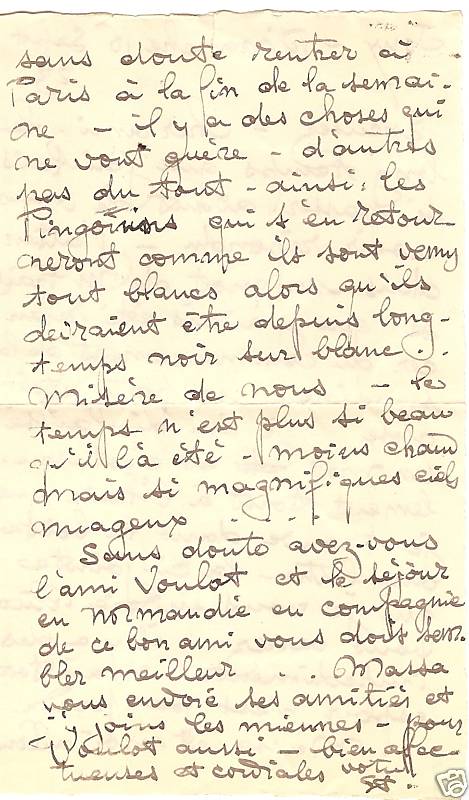 sans doute rentrer à
Paris à la fin de la semai-
ne - il y a des choses qui
ne vont guère - d'autres
pas du tout - ainsi: les
Pingouins qui s'en retour
neront comme ils sont venus
tout blancs alors qu'ils
devraient être depuis long-
temps noir sur blanc..
Misère de nous - le
temps n'est plus si beau
qu'il l'a été - moins chaud
mais si magnifiques ciels
nuageux . . . .
Sans doute avez-vous
l'ami Voulot et le séjour
en Normandie en compagnie
de ce bon ami vous doit sem-
bler meilleur . . Massa
vous envoie ses amitiés et
j'y joins les miennes - pour
Voulot aussi - bien affec-
tueuses et cordiales votre